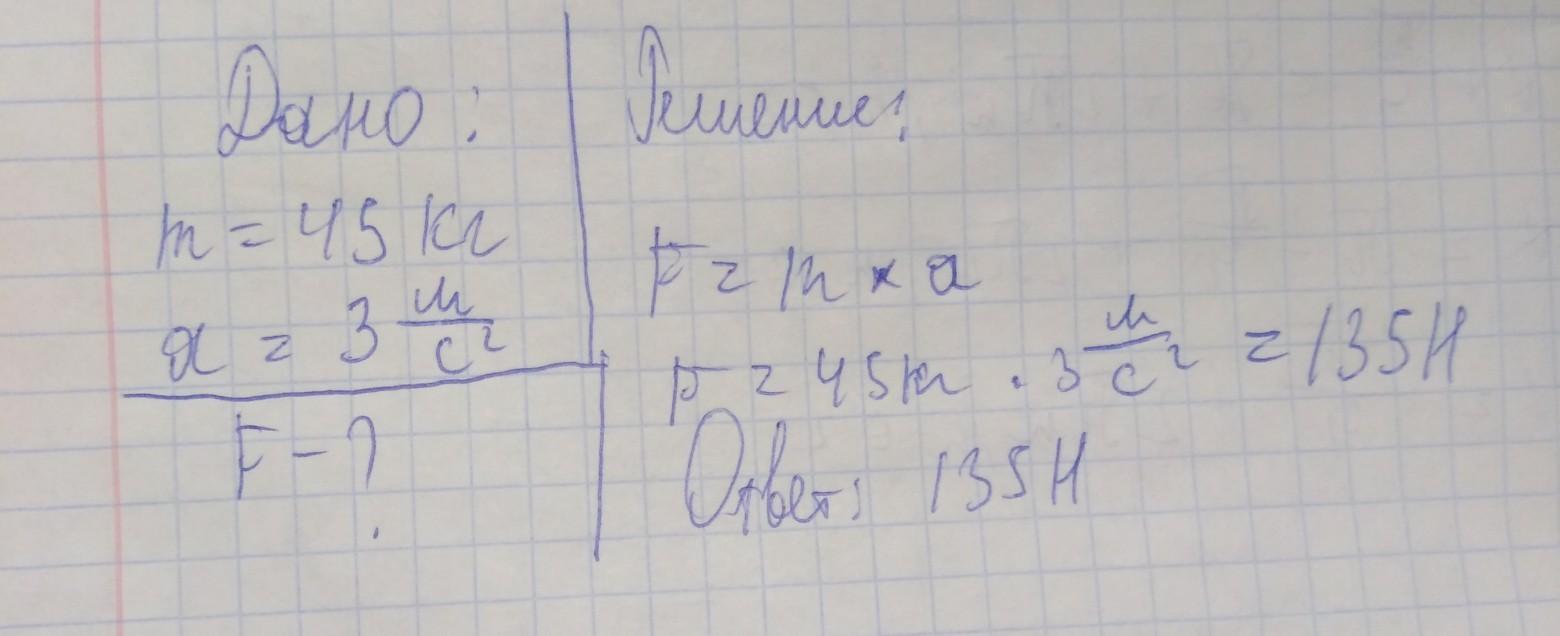 Дано:
m = 45 кг
a = 3 м/с²
F - ?
Решение:
F = m × a
F = 45 кг · 3 м/с² = 135 Н
Ответ: 135 Н